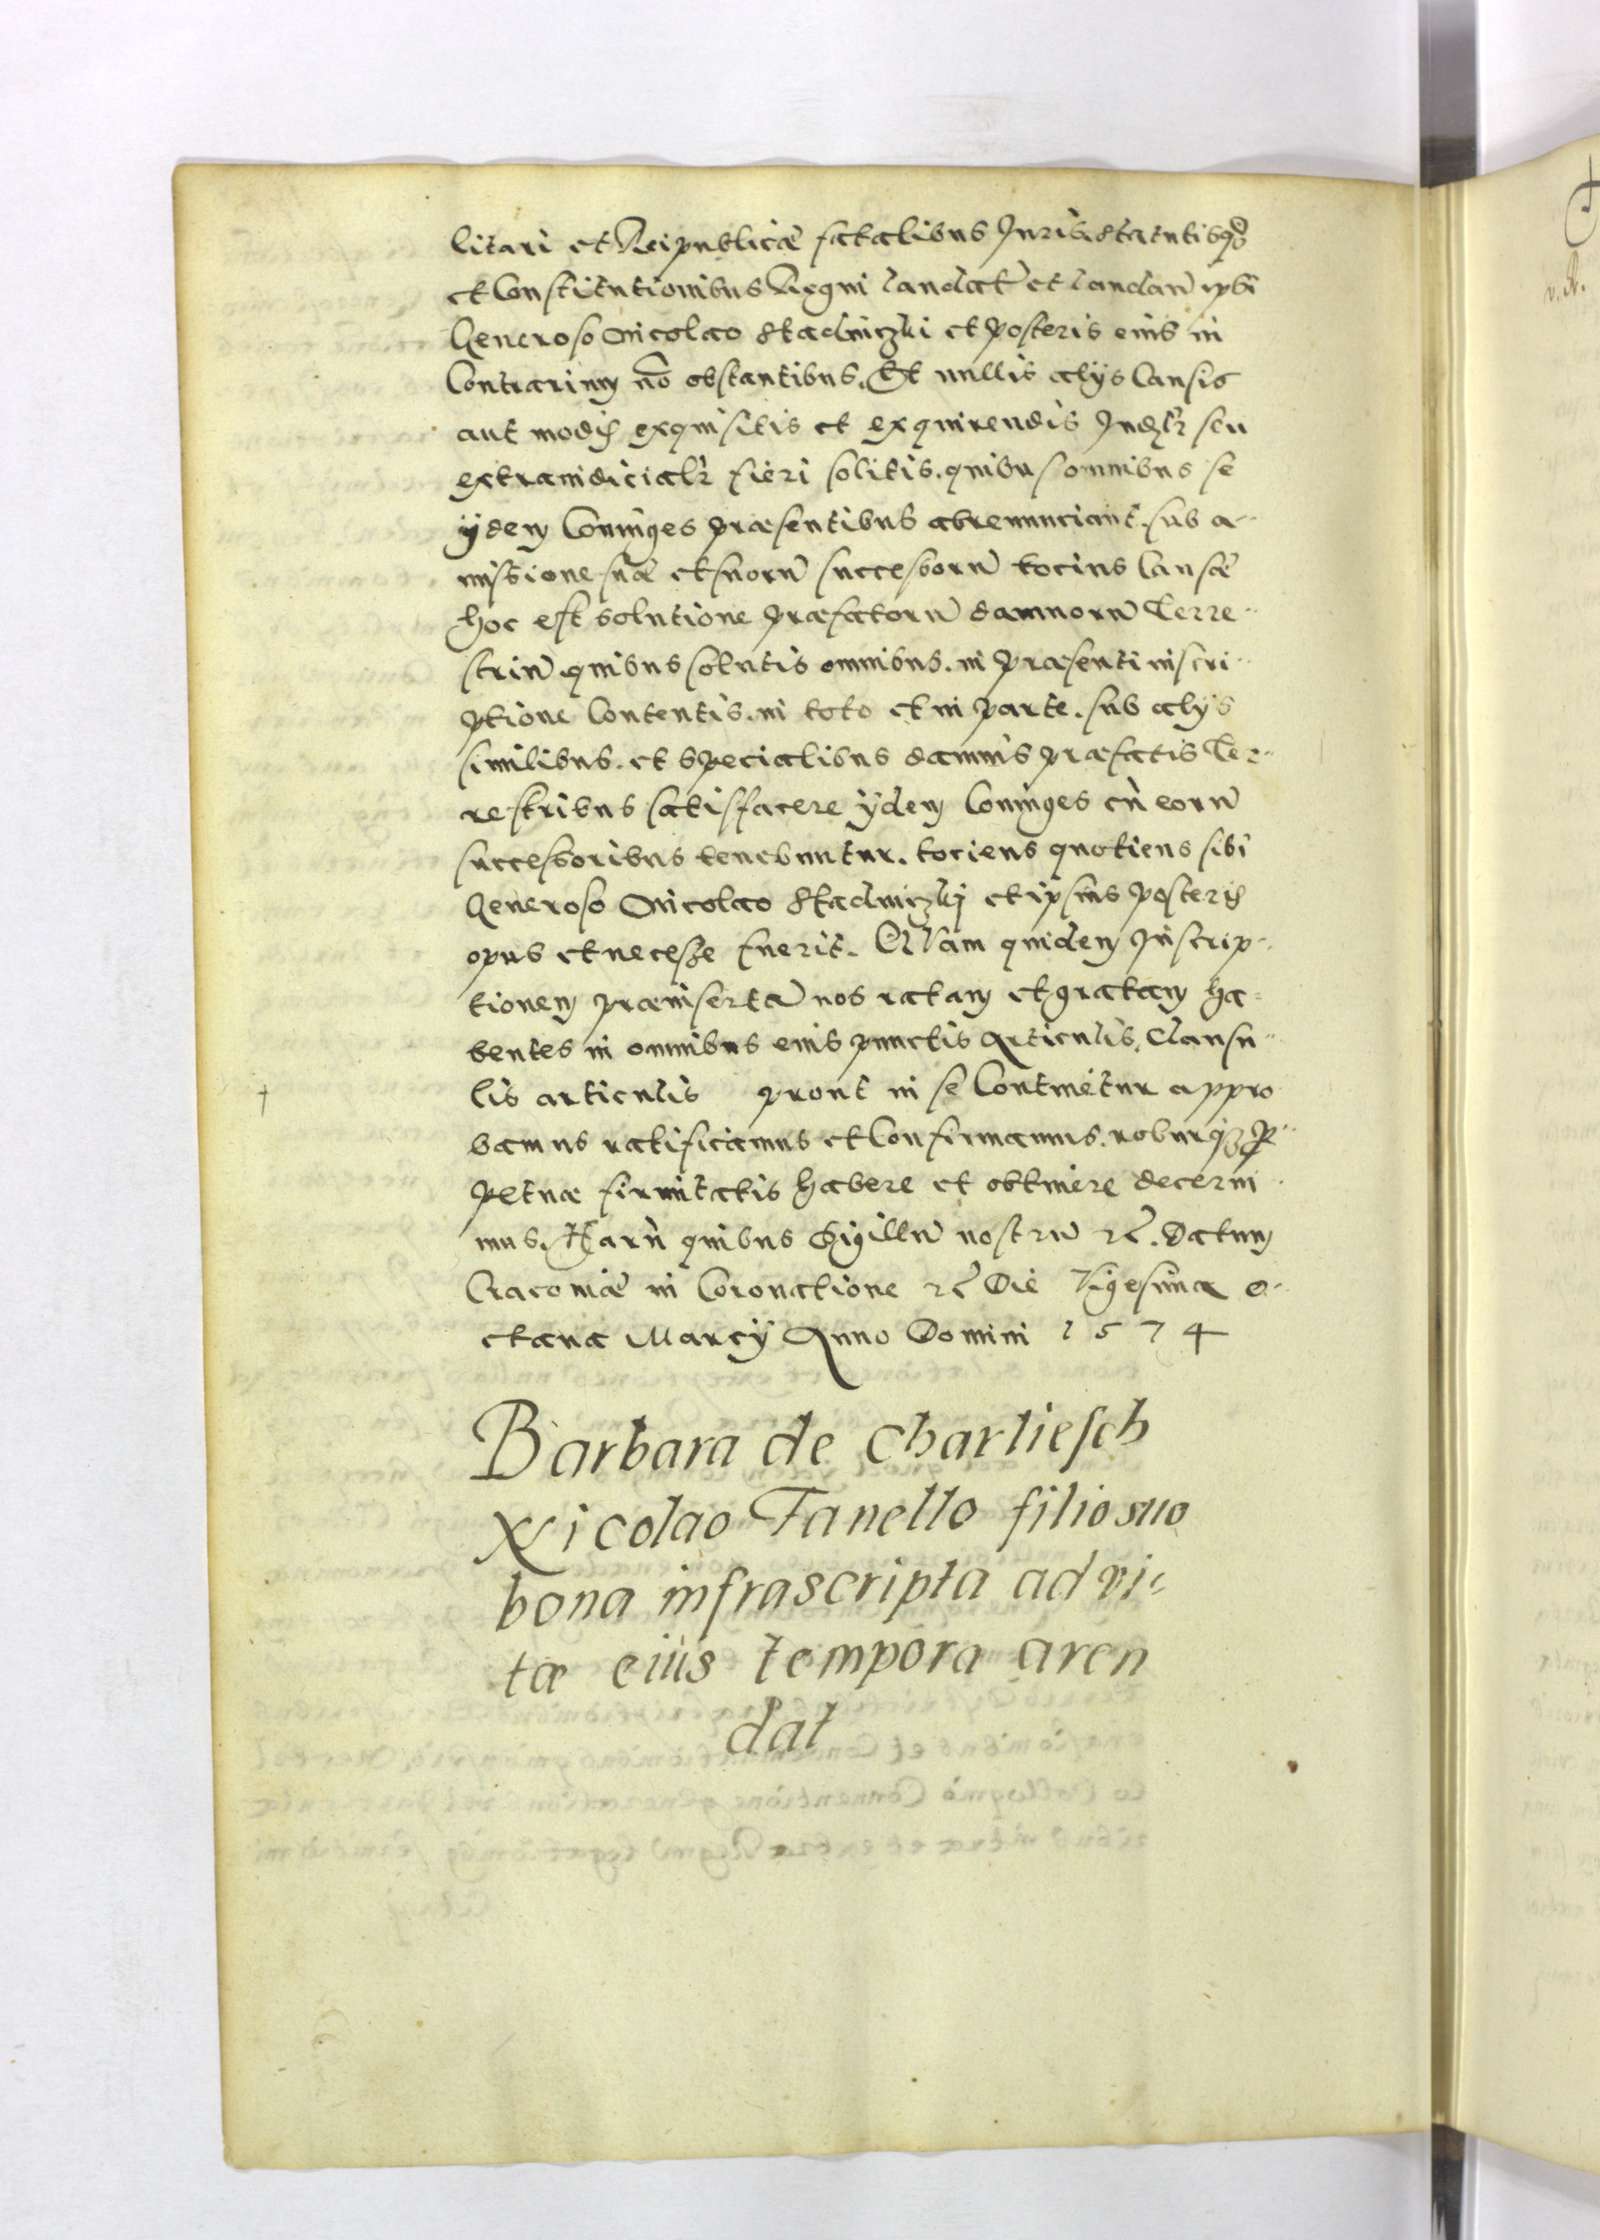 litari et Reipublicæ fatalibus Juris, statutisq3
et Constitutionibus Regni laudat̃ et laudan̄ ipsi
Generoso Nicolao Stadniczki et posteris eius in
Contrarium nō obstantibus. Et nullis alÿs Causis
aut modis exquisitis et exquirendis Judtr̃ seu
extraiudicialr̃ fieri solitis. quibus omnibus se
ÿdem Coniuges præsentibus abrenunciant. sub a-
missione suæ et suorū successorū tocius Causæ
hoc est solutione præfatorū damnorū Terre-
striū quibus solutis omnibus. in præsenti inscri-
ptione Contentis. in toto et in parte. sub alÿs
similibus. et specialibus damnis præfatis Ter-
restribus satisfacere ÿdem Coniuges cū eorū
successoribus tenebuntur. tociens quotiens sibi
Generoso Nicolao Stadniczkj et ipsius posteris
opus et necesse fuerit. Quam quidem Inscrip-
tionem præinsertā nos ratam et gratam ha-
bentes in omnibus eius punctis Articulis, Clausu-
lis articulis prout in se Continetur appro
bamus ratificamus et Confirmamus. roburq3 per-
petuæ firmitatis habere et obtinere decerni
mus. Harū quibus Sigillū nostrū rc̃. Datum
Cracoviæ in Coronatione rc̃ Die Vigesima o-
ctaua Marcÿ Anno Domini 1574
Barbara de Charliesch
Nicolao Fanello filio suo
bona infrascripta ad vi-
tæ eius tempora aren
dat